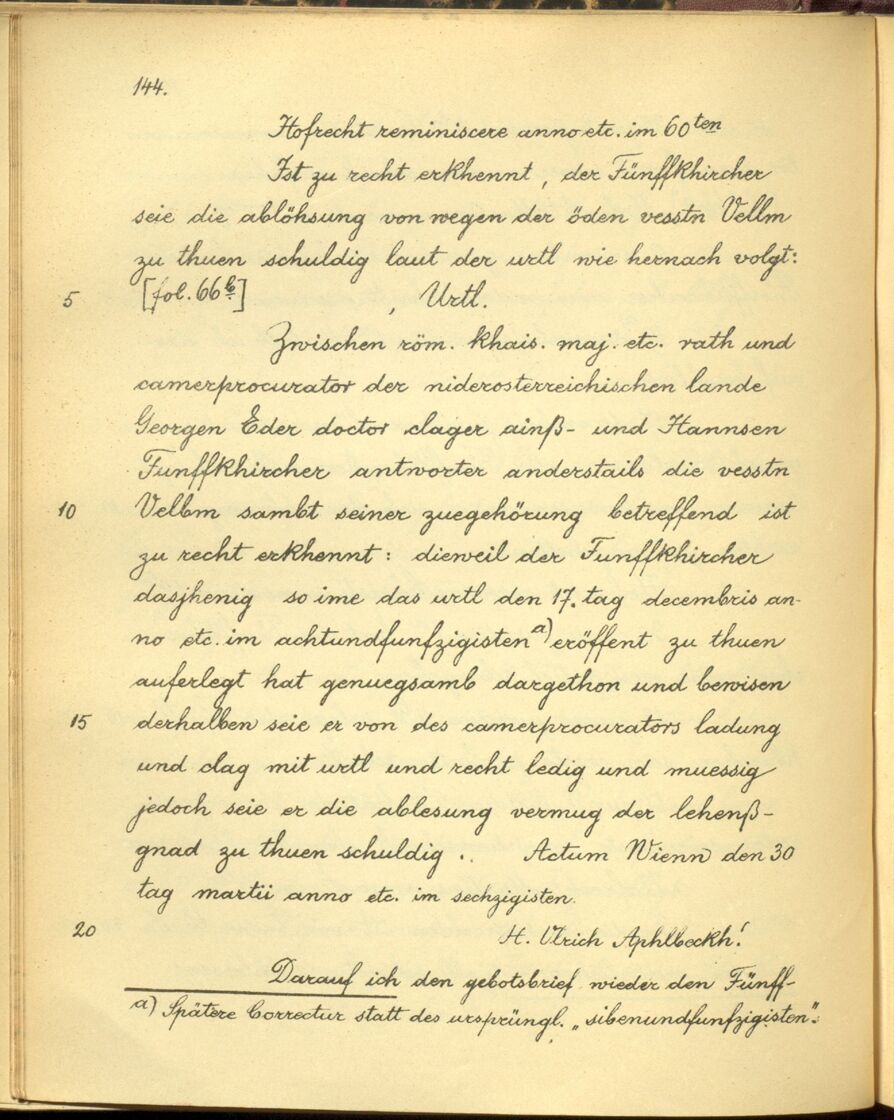 144.
Hofrecht reminiscere anno etc. im 60ten
Ist zu recht erkhennt, der Fünffkhircher
seie die ablöhsung von wegen der öden vesstn Vellm
zu thuen schuldig laut der urtl wie hernach volgt:
5 [fol. 66b] , Urtl.
Zwischen röm. khais. maj. etc. rath und
camerprocurator der niderosterreichischen lande
Georgen Eder doctor clager ainß- und Hannsen
Funffkhircher antworter anderstails die vesstn
10 Vellm sambt seiner zuegehörung betreffend ist
zu recht erkhennt: dieweil der Funffkhircher
dasjhenig so ime das urtl den 17. tag decembris an-
no etc. im achtundfunfzigisten a) eröffent zu thuen
auferlegt hat genuegsamb dargethon und bewisen
15 derhalben seie er von des camerprocurators ladung
und clag mit urtl und recht ledig und muessig
jedoch seie er die ablesung vermug der lehenß-
gnad zu thuen schuldig. . Actum Wienn den 30
tag martii anno etc. im sechzigisten.
20 H. Ulrich Aphlbeckh!
Darauf ich den gebotsbrief wieder den Fünff-
a) Spätere Correctur statt des ursprüngl. „sibenundfunfzigisten".